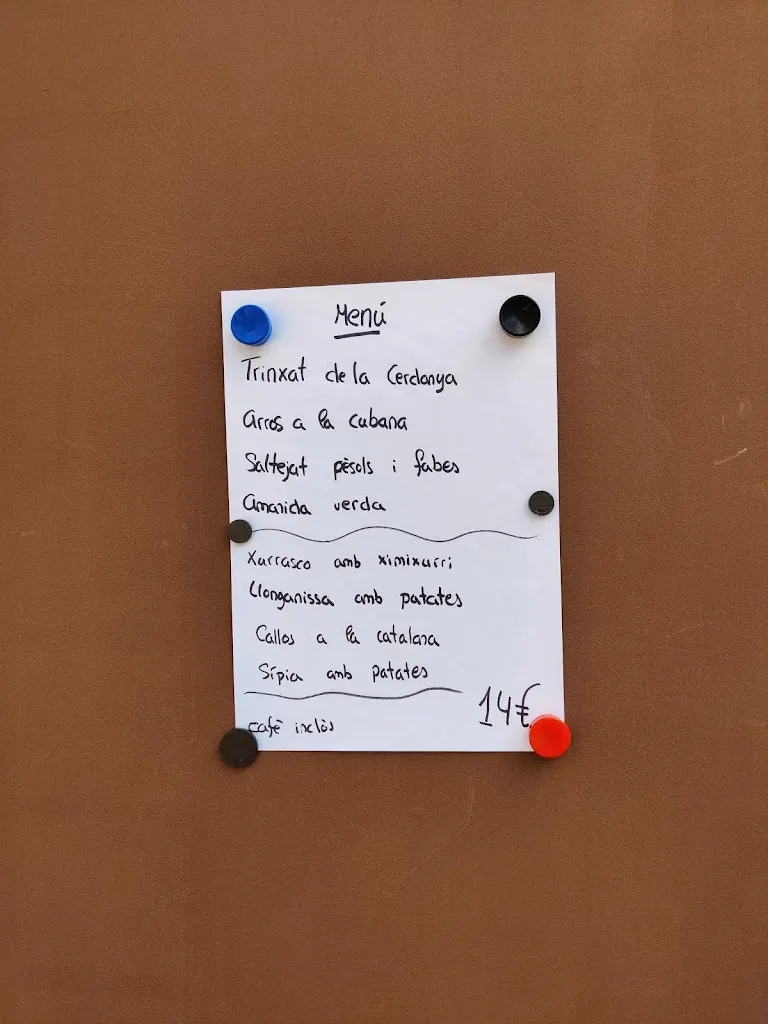 Menú
Trinxat de la Cerdanya
Arros a la cubana
Saltejat pèsols i fabes
Amanida verda
Xurrasco amb ximixurri
Llonganissa amb patates
Callos a la catalana
Sípia amb patates
14€
cafè inclòs